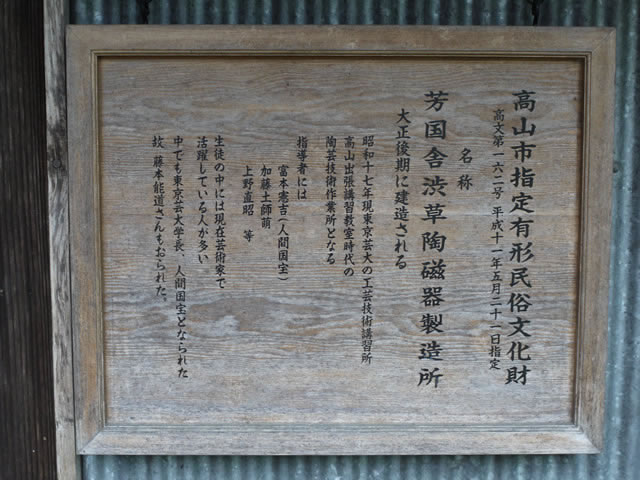 高山市指定有形民俗文化財
高文第一六二号 平成十一年五月二十一日指定
名称
芳国舎渋草陶磁器製造所
大正後期に建造される
昭和十七年現東京芸大の工芸技術講習所
高山出張講習教室時代の
陶芸技術作業所となる
指導者には
富本憲吉(人間国宝)
加藤土師萌
上野直昭 等
生徒の中には現在芸術家で
活躍している人が多い
中でも東京芸大学長、人間国宝となられた
故 藤本能道さんもおられた。